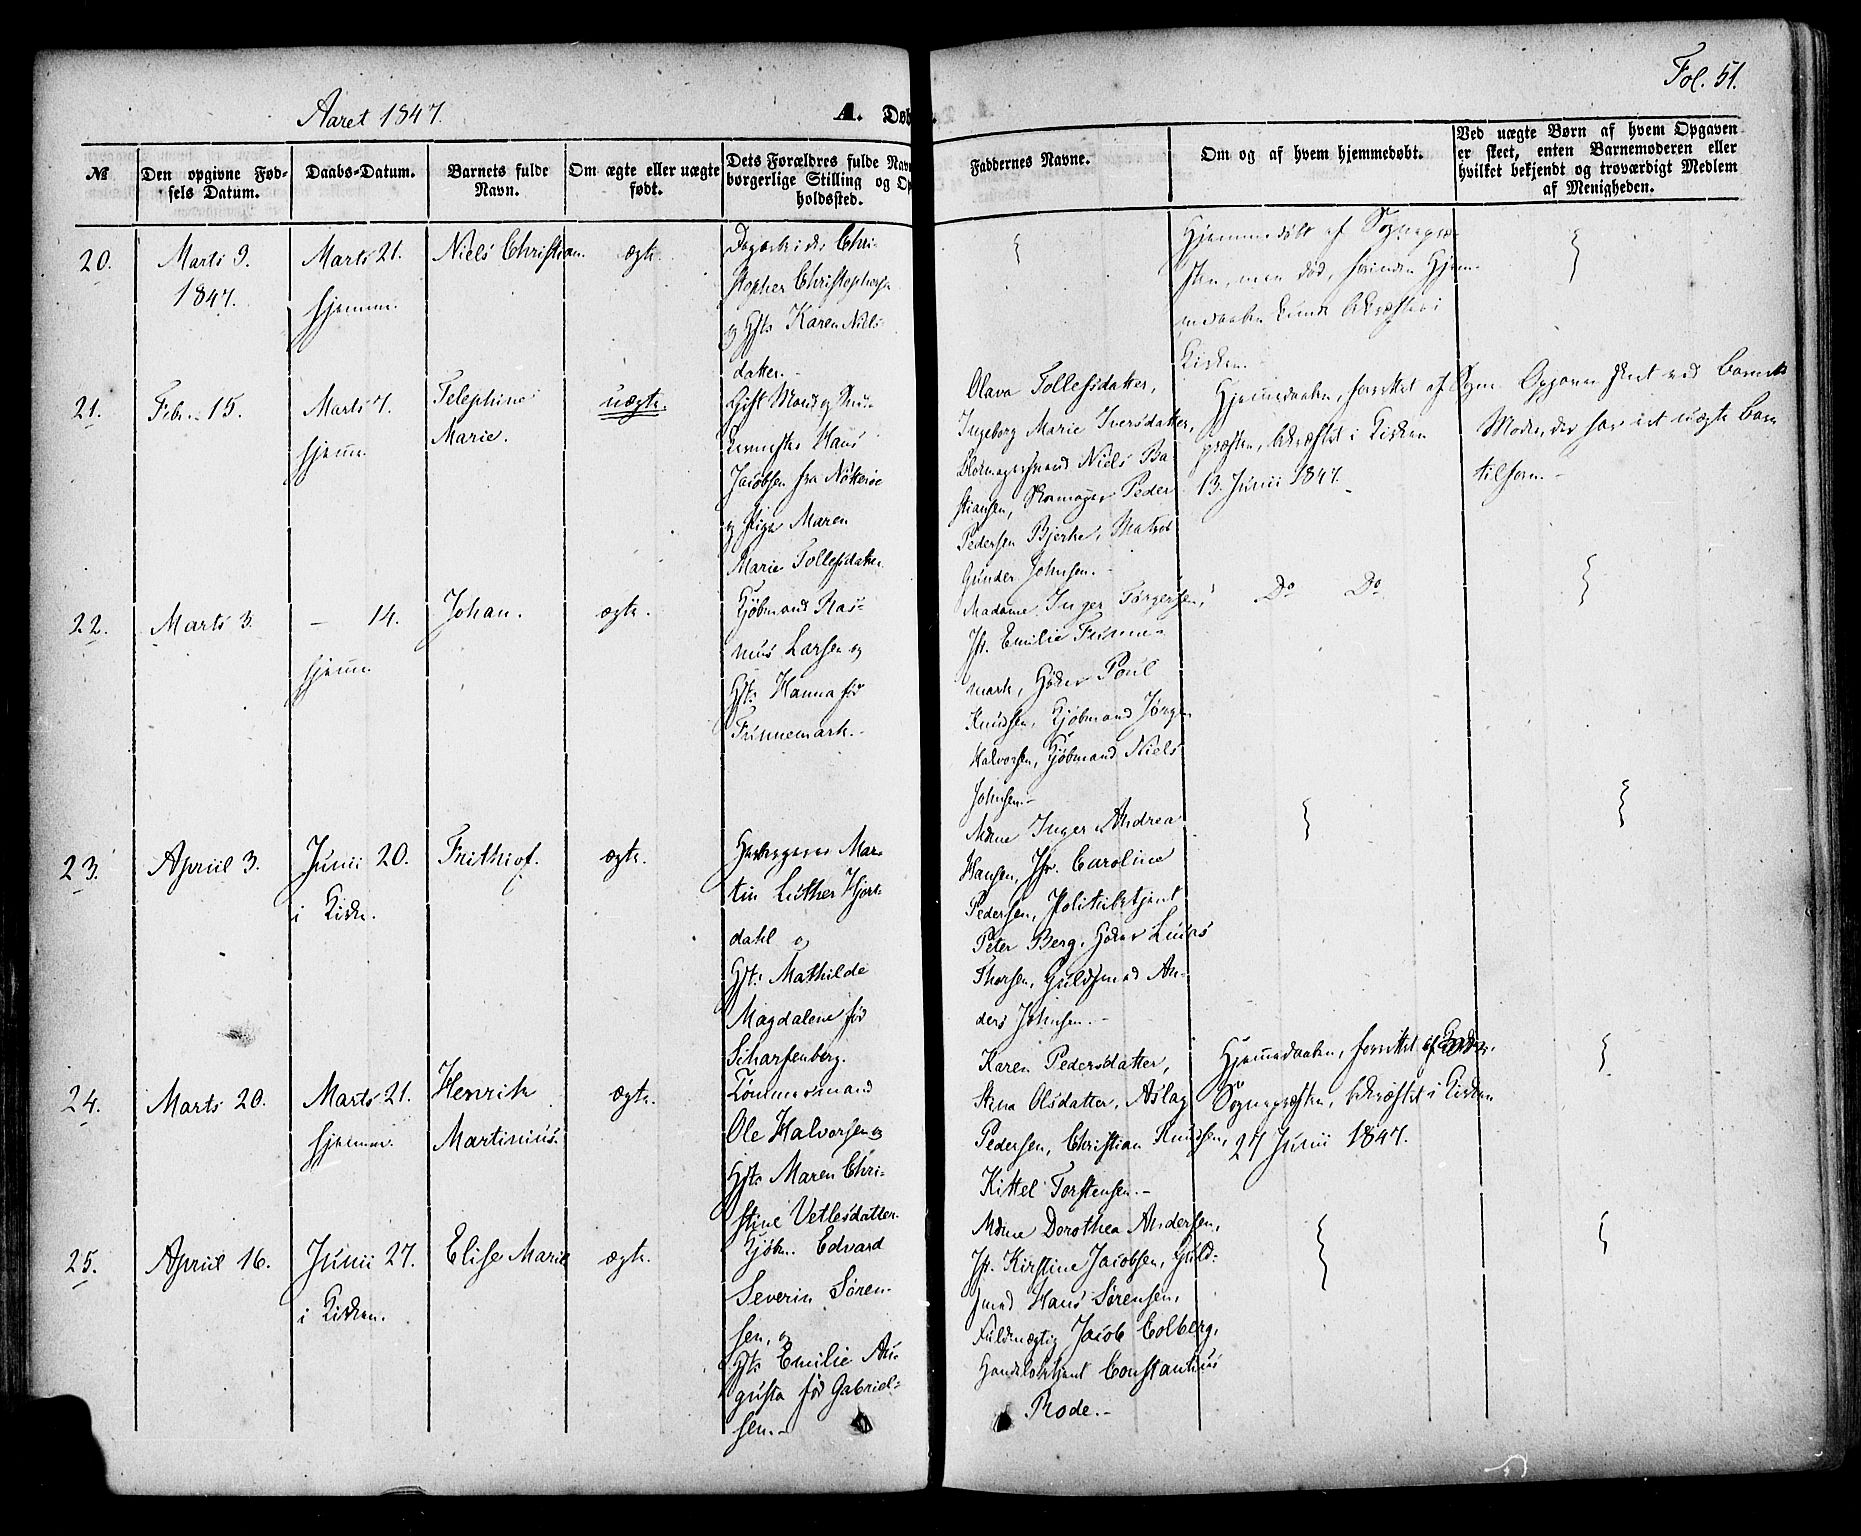 Aaret 1847.
A. Døb
Fol. 51.
№
Den opgivne Fød-
sels Datum.
Daabs-Datum.
Barnets fulde
Navn.
Om ægte eller uægte
født.
Dets Forældres fulde Nav
borgerlige Stilling og Op
holdssted.
Faddernes Navne.
Om og af hvem hjemmedøbt.
Ved uægte Børn af hvem Opgaven
er skeet, enten Barnemoderen eller
hvilket bekjendt og troværdigt Medlem
af Menigheden.
20.
Marts 9.
1847.
Marts 21.
hjemme.
Niels Christian.
ægte
Dagarbeider Chri-
stopher Christophers
og Hst. Karen Niels-
datter.-
Hjemmedøbt af Sognepræ-
sten, men død, forinden Hjem-
medaaben kunde bekræftes i
Kirken.
21.
Febr. 15.
Marts 7.
hjemme
Telephine
Marie.
uægte.
Gift Mand og
Hans
Jacobsen fra Nøtterøe
og Pige Maren
Marie Tollefsdatter.
Olava Tollefsdatter,
Ingeborg Marie Iversdatter,
Niels Ba-
stiansen, Skomager Peder
Pedersen Bjerke, Matros
Gunder Johnsen.-
Hjemmedaaben, forrettet af Sogne-
præsten, bekræftet i Kirken
13. Junii 1847.
Opgaven skeet ved Barnets
Moder, der har et uægte Barn
tilforn.-
22.
Marts 3.
- 14.
hjemme
Johan.
ægte.
Kjøbmand Ras-
mus Larsen og
Hst. Hanna før
Frisnemark.-
Madame Inger Torgersen,
Jfr. Emilie
mark, Høker Poul
Knudsen, Kjøbmand Jørgen
Halvorsen, Kjøbmand Niels
Johnsen.-
Do Do
23.
Apriil 3.
Junii 20.
i Kirken.
Frithiof.
ægte.
Mar-
tin Luther Hjort-
dahl og
Hst. Mathilde
Magdalene fød
Scharfenberg.
Mdme Inger Andrea
Hansen, Jfr. Caroline
Pedersen, Politibetjent
Peter Berg, Høker Lucas
Thorsen, Guldsmed An-
ders Johnsen.-
24.
Marts 20.
Marts 21.
hjemme.
Henrik
Martinius.
ægte.
Tømmermand
Ole Halvorsen og
Hst. Maren Chri-
stine Vetlesdatter.
Karen Pedersdatter,
Stina Olsdatter, Aslag
Pedersen, Christian Knudsen,
Kittel Torstensen.-
Hjemmedaaben, forrettet af
Sognepræsten, bekræftet i Kirken
27 Junii 1847.
25.
Apriil 16.
Junii 27.
i Kirken.
Elise Marie
ægte.
Kjøbm. Edvard
Severin Søren-
sen, og
Hst. Emilie Au-
gusta fød Gabriel-
sen.-
Mdme Dorothea Andersen,
Jfr. Kirstine Jacobsen, Guld-
smed Hans Sørensen,
Fuldmægtig Jacob Colberg,
Handelsbetjent Constantius
Rode.-